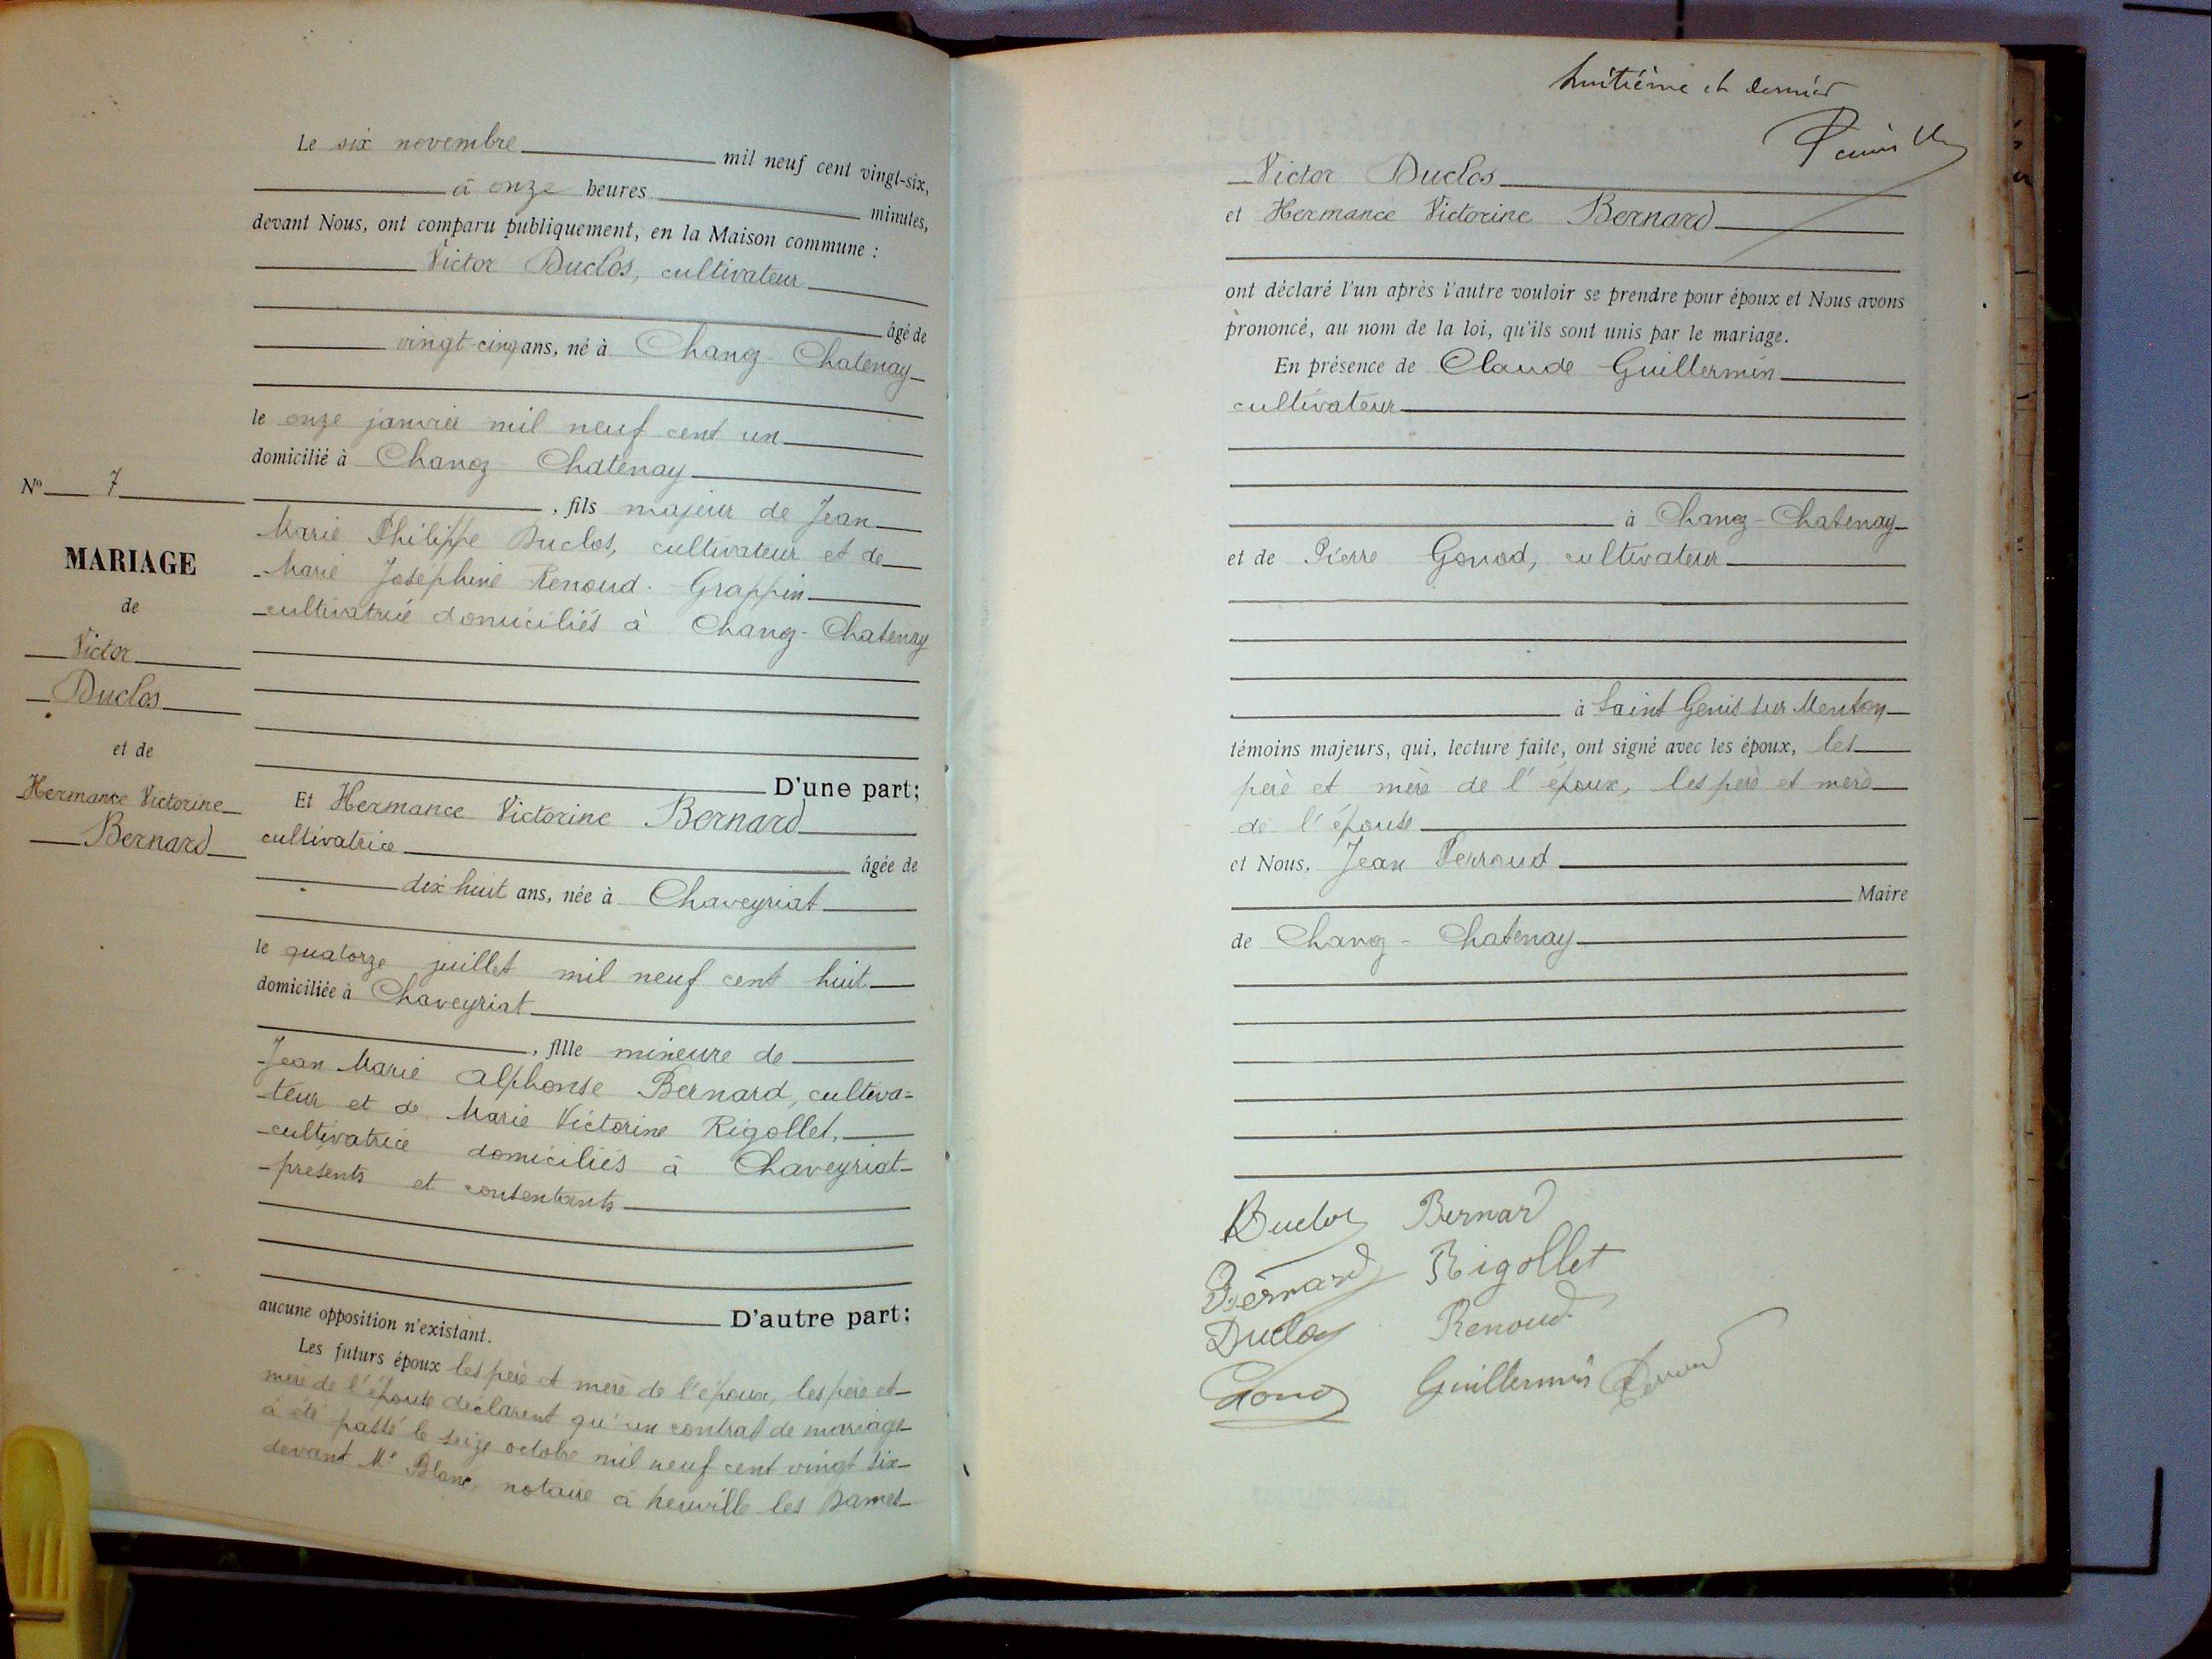 Le six novembre mil neuf cent vingt-six,
à onze heures minutes,
devant Nous, ont comparu publiquement, en la Maison commune :
Victor Duclos, cultivateur
âgé de
vingt-cinq ans, né à Chanoz-Chatenay
le onze janvier mil neuf cent un
domicilié à Chanoz Chatenay
, fils majeur de Jean
Marie Philippe Duclos, cultivateur et de
Marie Joséphine Renoud-Grappin
cultivatrice domiciliés à Chanoz-Chatenay
D'une part;
Et Hermance Victorine Bernard
cultivatrice
âgée de
dix huit ans, née à Chaveyriat
le quatorze juillet mil neuf cent huit
domiciliée à Chaveyriat
, fille mineure de
Jean Marie Alphonse Bernard, cultiva=
teur et de Marie Victorine Rigollet,
cultivatrice domiciliés à Chaveyriat
présents et consentants
D'autre part;
aucune opposition n'existant.
Les futurs époux les père et mère de l'époux, les père et
mère de l'épouse déclarent qu'un contrat de mariage
a été passé le seize octobre mil neuf cent vingt six
devant Me Blanc, notaire à Neuville les Dames
No 7
MARIAGE
de
Victor
Duclos
et de
Hermance Victorine
Bernard
huitième et dernier
Victor Duclos
et Hermance Victorine Bernard
ont déclaré l'un après l'autre vouloir se prendre pour époux et Nous avons
prononcé, au nom de la loi, qu'ils sont unis par le mariage.
En présence de Claude Guillermin
cultivateur
à Chanoz-Chatenay
et de Pierre Gonod, cultivateur
à Saint Genis sur Menton
témoins majeurs, qui, lecture faite, ont signé avec les époux, les
père et mère de l'époux, les père et mère
de l'épouse
et Nous, Jean Perroud
Maire
de Chanoz-Chatenay
Duclos Bernard
Bernard Rigollet
Duclos Renoud
Gonod Guillermin Perroud